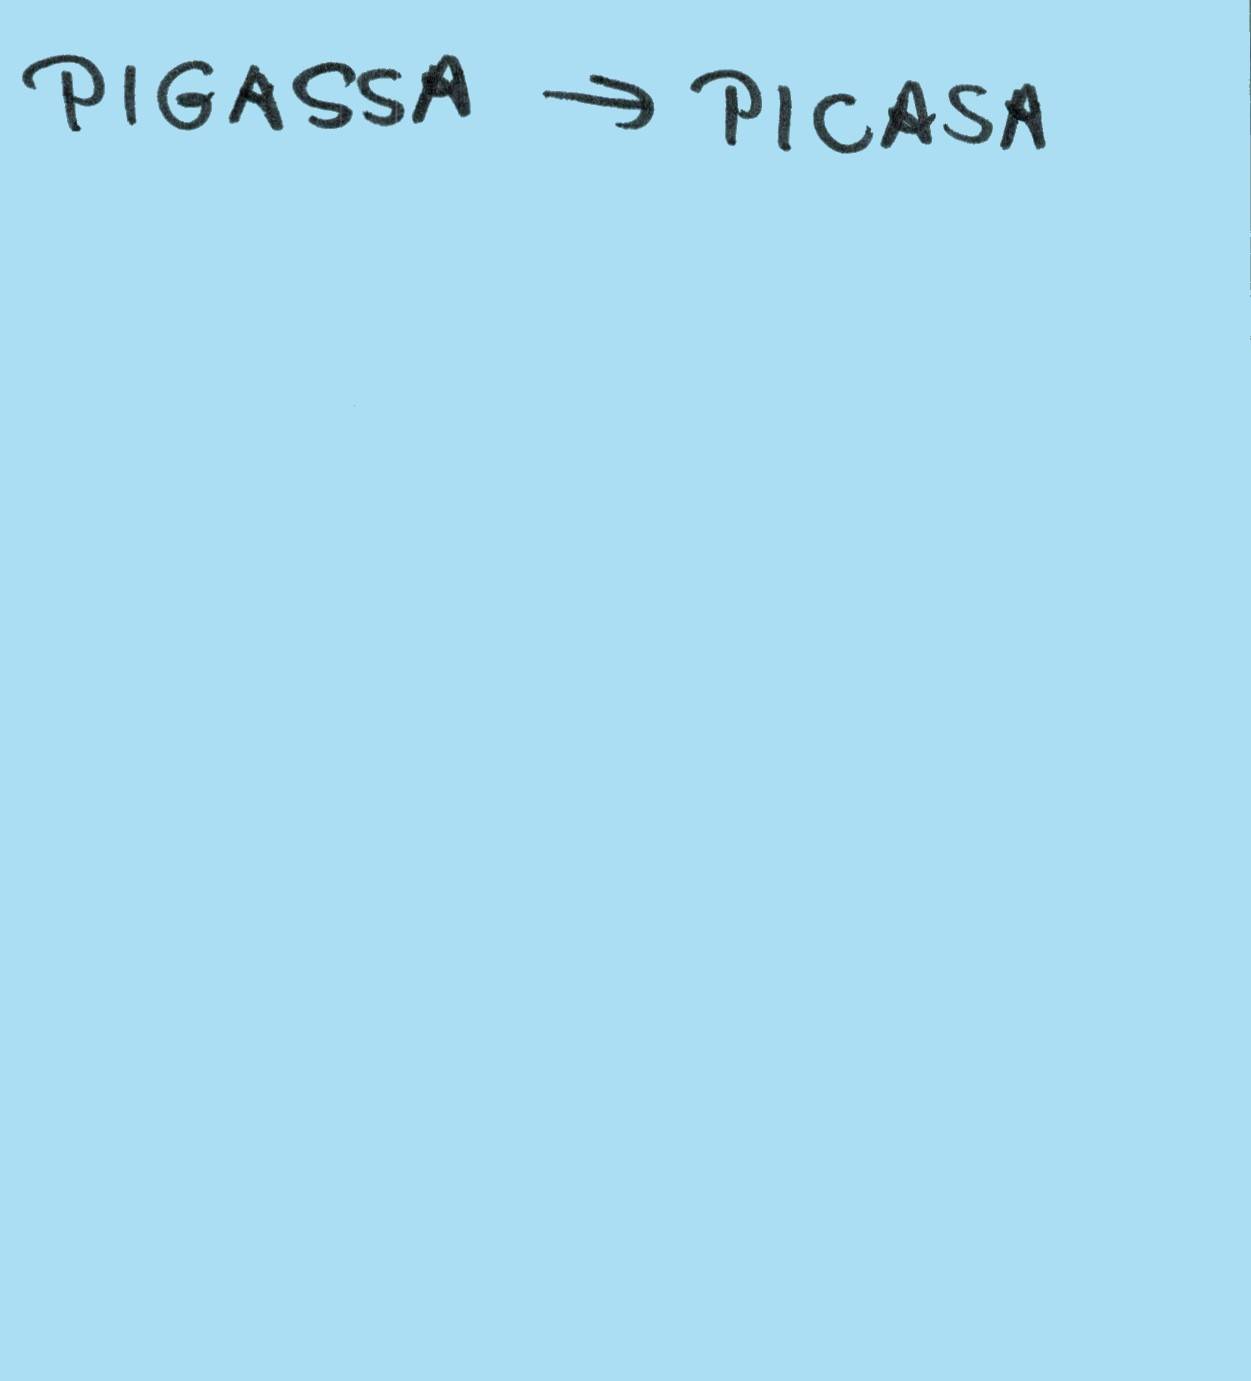 PIGASSA → PICASA